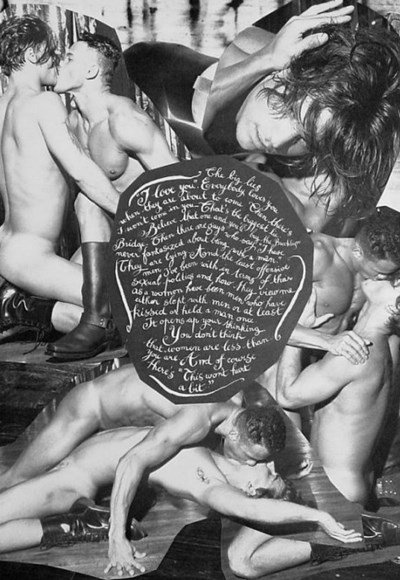 The big lies
"I love you". Everybody loves you
when they are about to come Then there's
I won't come in you - That's the biggest
Believe That one and you'll buy the Brooklyn
Bridge. Then there are guys who say "I have
never fantasized about being with a man."
They are lying And the least offensive
men I've been with in terms of their
sexual politics and how they view me
as a woman have been men who have
either slept with men or at least
kissed or held a man once
It opens up your thinking
You don't think
that women are less than
you are And of course
There's "This won't hurt
a bit"